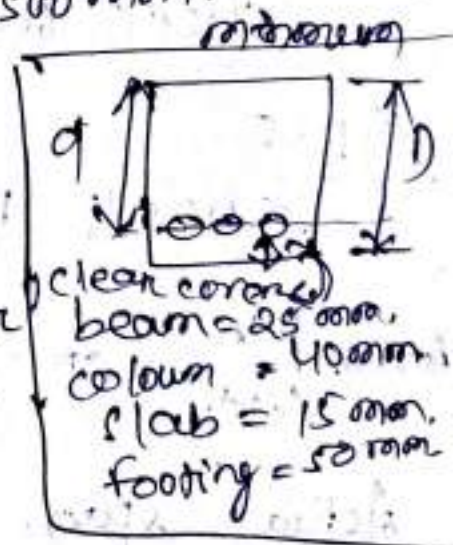 500
d
D
clear cover
beam = 25 mm.
coloum = 40mm.
slab = 15 mm.
footing = 50 mm